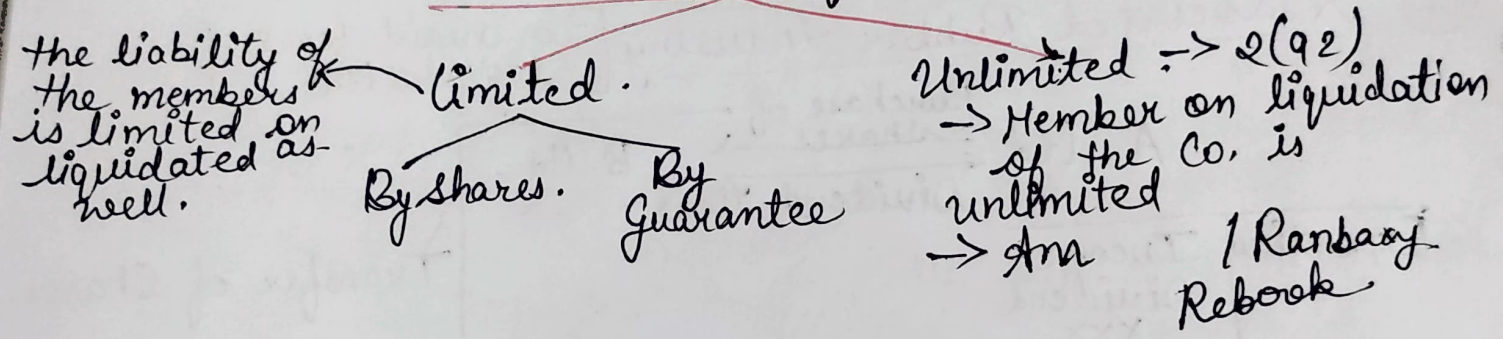 the liability of
the members
is limited on
liquidated as
well.
Limited.
By shares.
By
Guarantee
Unlimited :-> 2(92)
-> Member on liquidation
of the Co. is
unlimited
->
/ Ranbaxy